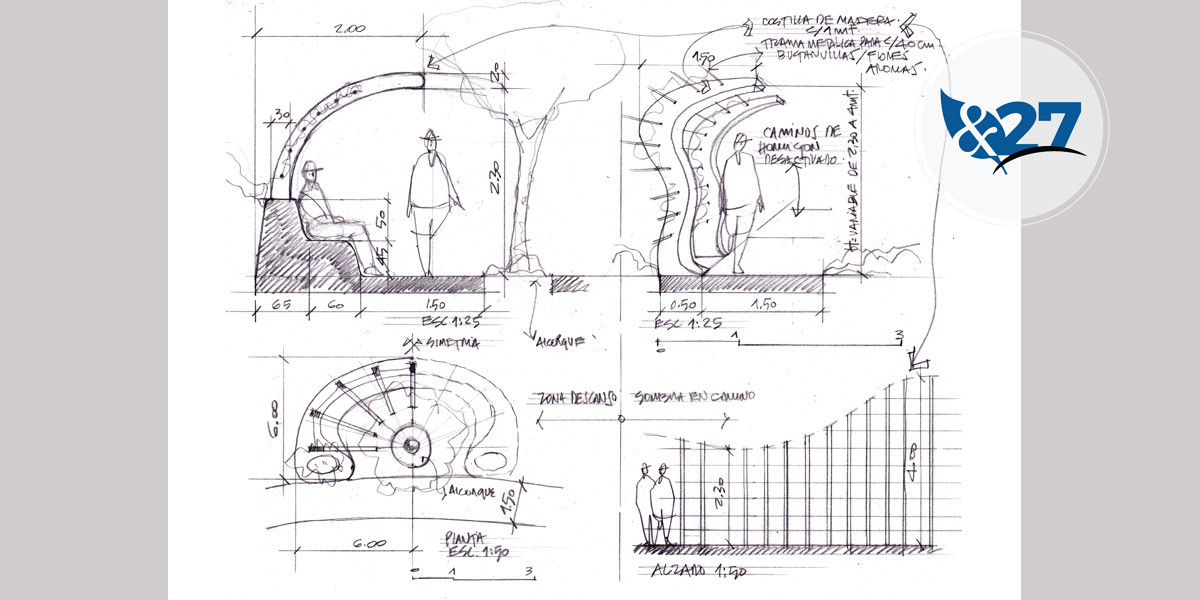 2.00
COSTILLA DE MADERA.
C/1 mt.
TRAMA METALICA PARA C/40 cm.
BUGANVILLAS / FLORES
AROMAS.
&27
20
1.50
30
CAMINOS DE
HORMIGON
DESACTIVADO
2.30
H: VARIABLE DE 2.30 A 4 mt.
50
45
65
60
1.50
0.50
1.50
ESC. 1:25
ESC. 1:25
SIMETRIA
ALCORQUE
0
1
3
ZONA DESCANSO
SOMBRA EN CAMINO
6.00
2.30
4.00
ALCORQUE
1.50
6.00
PLANTA
ESC. 1:50
0
1
3
ALZADO 1:50